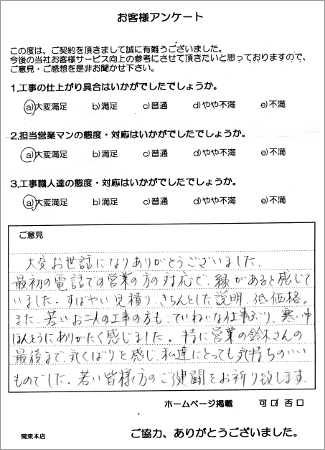 お客様アンケート
この度は、ご契約を頂きまして誠に有難うございました。
今後の当社お客様サービス向上の参考にさせて頂きたいと思っておりますので、
ご意見・ご感想を是非お聞かせ下さい。
1.工事の仕上がり具合はいかがでしたでしょうか。
a)大変満足 b)満足 c)普通 d)やや不満 e)不満
2.担当営業マンの態度・対応はいかがでしたでしょうか。
a)大変満足 b)満足 c)普通 d)やや不満 e)不満
3.工事職人達の態度・対応はいかがでしたでしょうか。
a)大変満足 b)満足 c)普通 d)やや不満 e)不満
ご意見
大変お世話になりありがとうございました。
最初の電話での営業の方の対応で、縁があると感じて
いました。すばやい見積り、きちんとした説明、低価格。
また、若いお二人の工事の方も、ていねいな仕事ぶり、寒い中
ほんとうにありがたく感じました。特に営業の鈴木さんの
最後まで、気くばりを感じ、私達にとっても気持ちのいい
ものでした。若い皆様方のご健闘をお祈り致します
ホームページ掲載 可□ 否□
ご協力、ありがとうございました。
関東本店